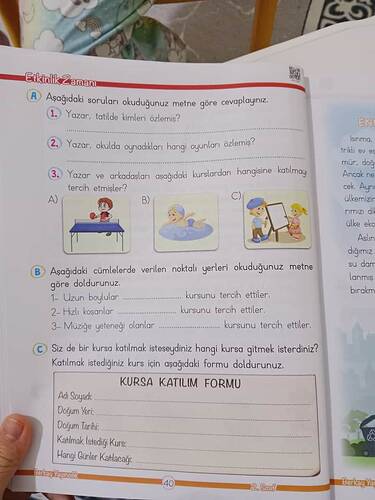 Etkinlik Zamanı
A Aşağıdaki soruları okuduğunuz metne göre cevaplayınız.
1. Yazar, tatilde kimleri özlemiş?
2. Yazar, okulda oynadıkları hangi oyunları özlemiş?
3. Yazar ve arkadaşları aşağıdaki kurslardan hangisine katılmayı
tercih etmişler?
A) B) C)
B Aşağıdaki cümlelerde verilen noktalı yerleri okuduğunuz metne
göre doldurunuz.
1- Uzun boylular ........................ kursunu tercih ettiler.
2- Hızlı koşanlar ........................ kursunu tercih ettiler.
3- Müziğe yeteneği olanlar ........................ kursunu tercih ettiler.
C Siz de bir kursa katılmak isteseydiniz hangi kursa gitmek isterdiniz?
Katılmak istediğiniz kurs için aşağıdaki formu doldurunuz.
KURSA KATILIM FORMU
Adı Soyadı:
Doğum Yeri:
Doğum Tarihi:
Katılmak İstediği Kurs:
Hangi Günler Katılacağı:
Berkay Yayıncılık
40
2. Sınıf
Isınma,
trikli ev
mür, doğ
Ancak ne
cek. Ayrı
ülkemizin
rımızı
ülke eko
Aslın
dığımız
su dam
lanmış
bırakm
Berkay Ya